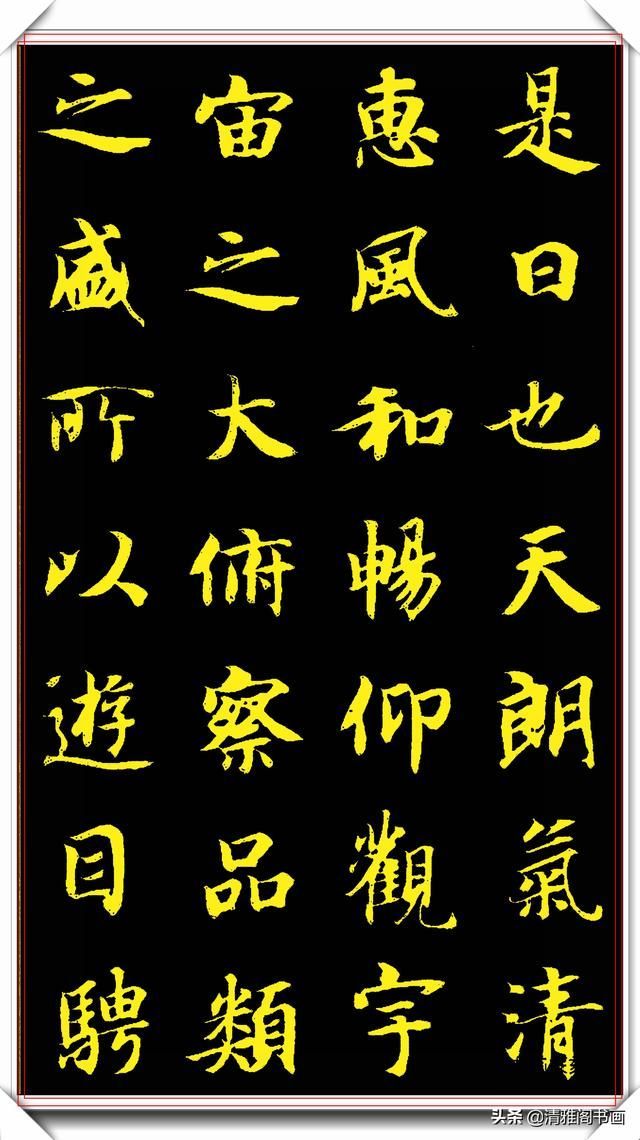 是日也天朗氣清
惠風和暢仰觀宇
宙之大俯察品類
之盛所以遊目騁
头条 @清雅阁书画